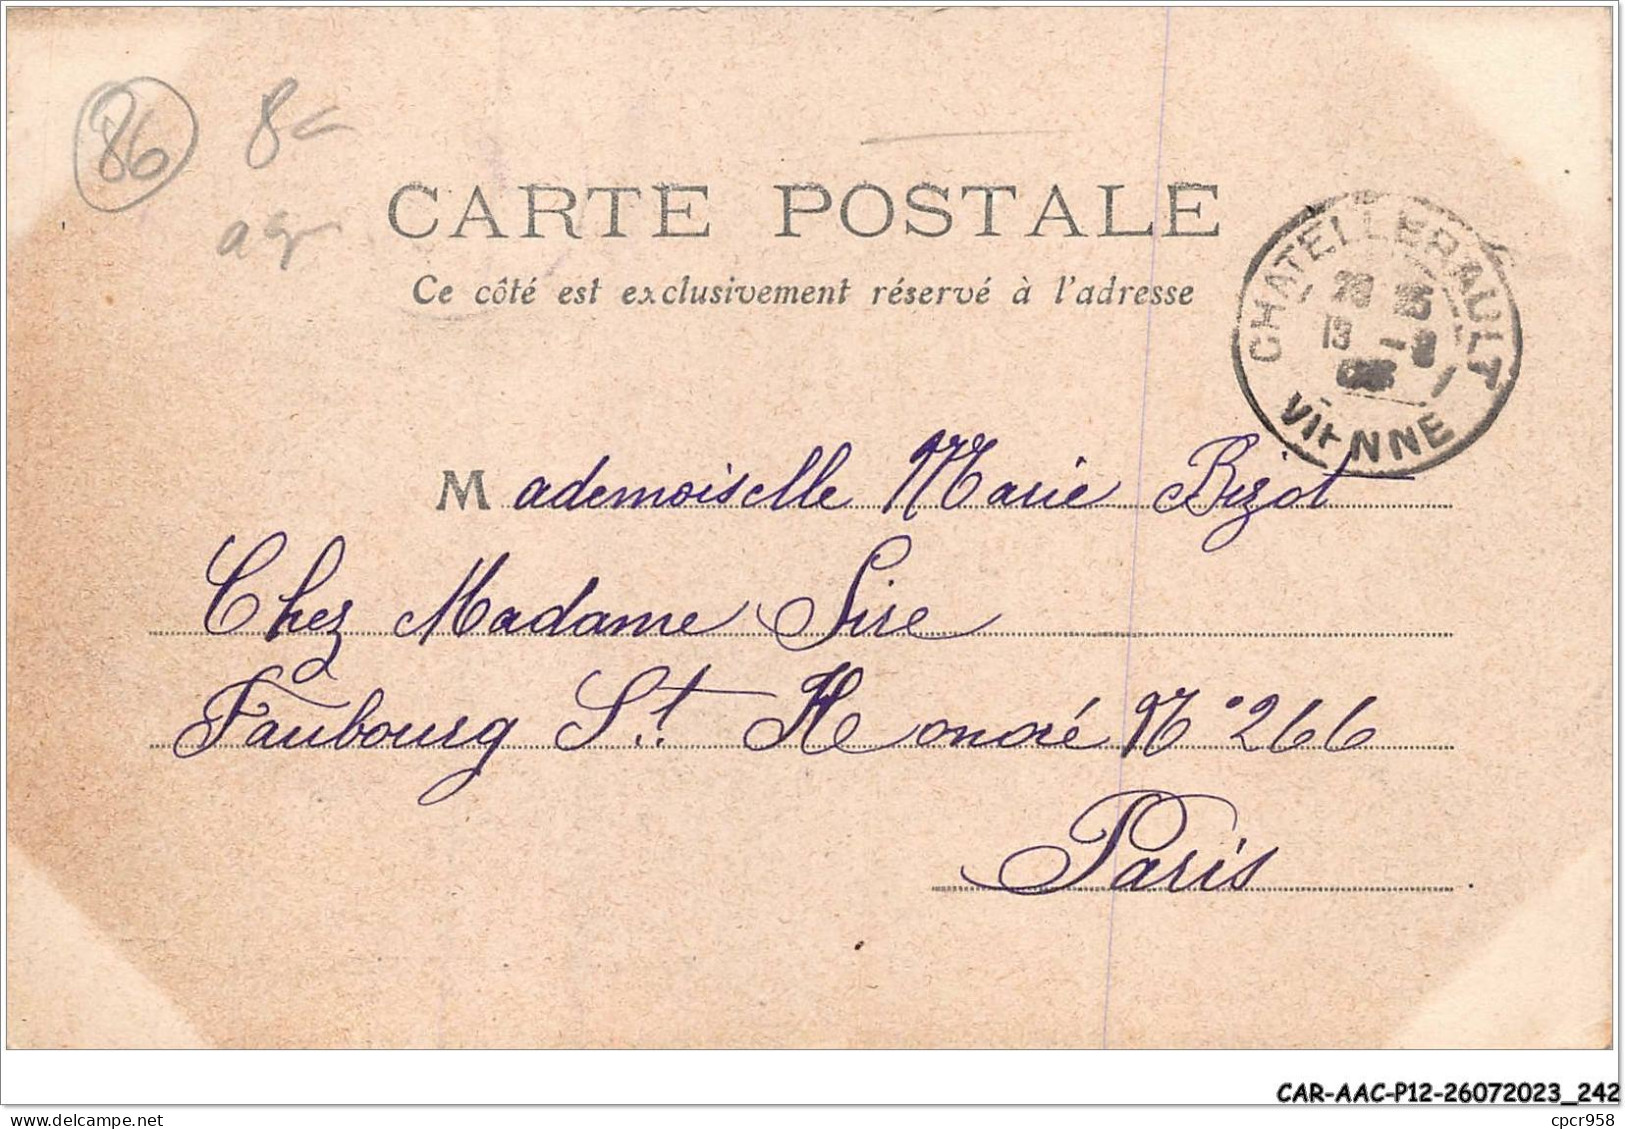 86
8
CARTE POSTALE
Ce côté est exclusivement réservé à l'adresse
CHATELLERAULT
13
VIENNE
Mademoiselle Marie Bizot
Chez Madame Sire
Faubourg St. Honoré N° 266
Paris
CAR-AAC-P12-26072023_242
www.delcampe.net
cpcr958